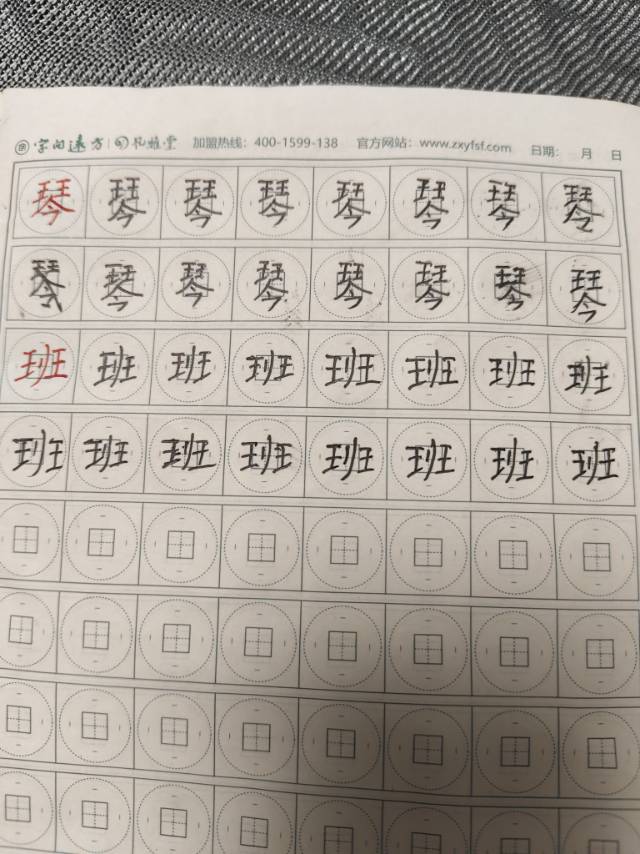 字向远方 孔雅堂 加盟热线：400-1599-138 官方网站：www.zxyfsf.com 日期： 月 日
琴 琴 琴 琴 琴 琴 琴 琴
琴 琴 琴 琴 琴 琴 琴 琴
班 班 班 班 班 班 班 班
班 班 班 班 班 班 班 班